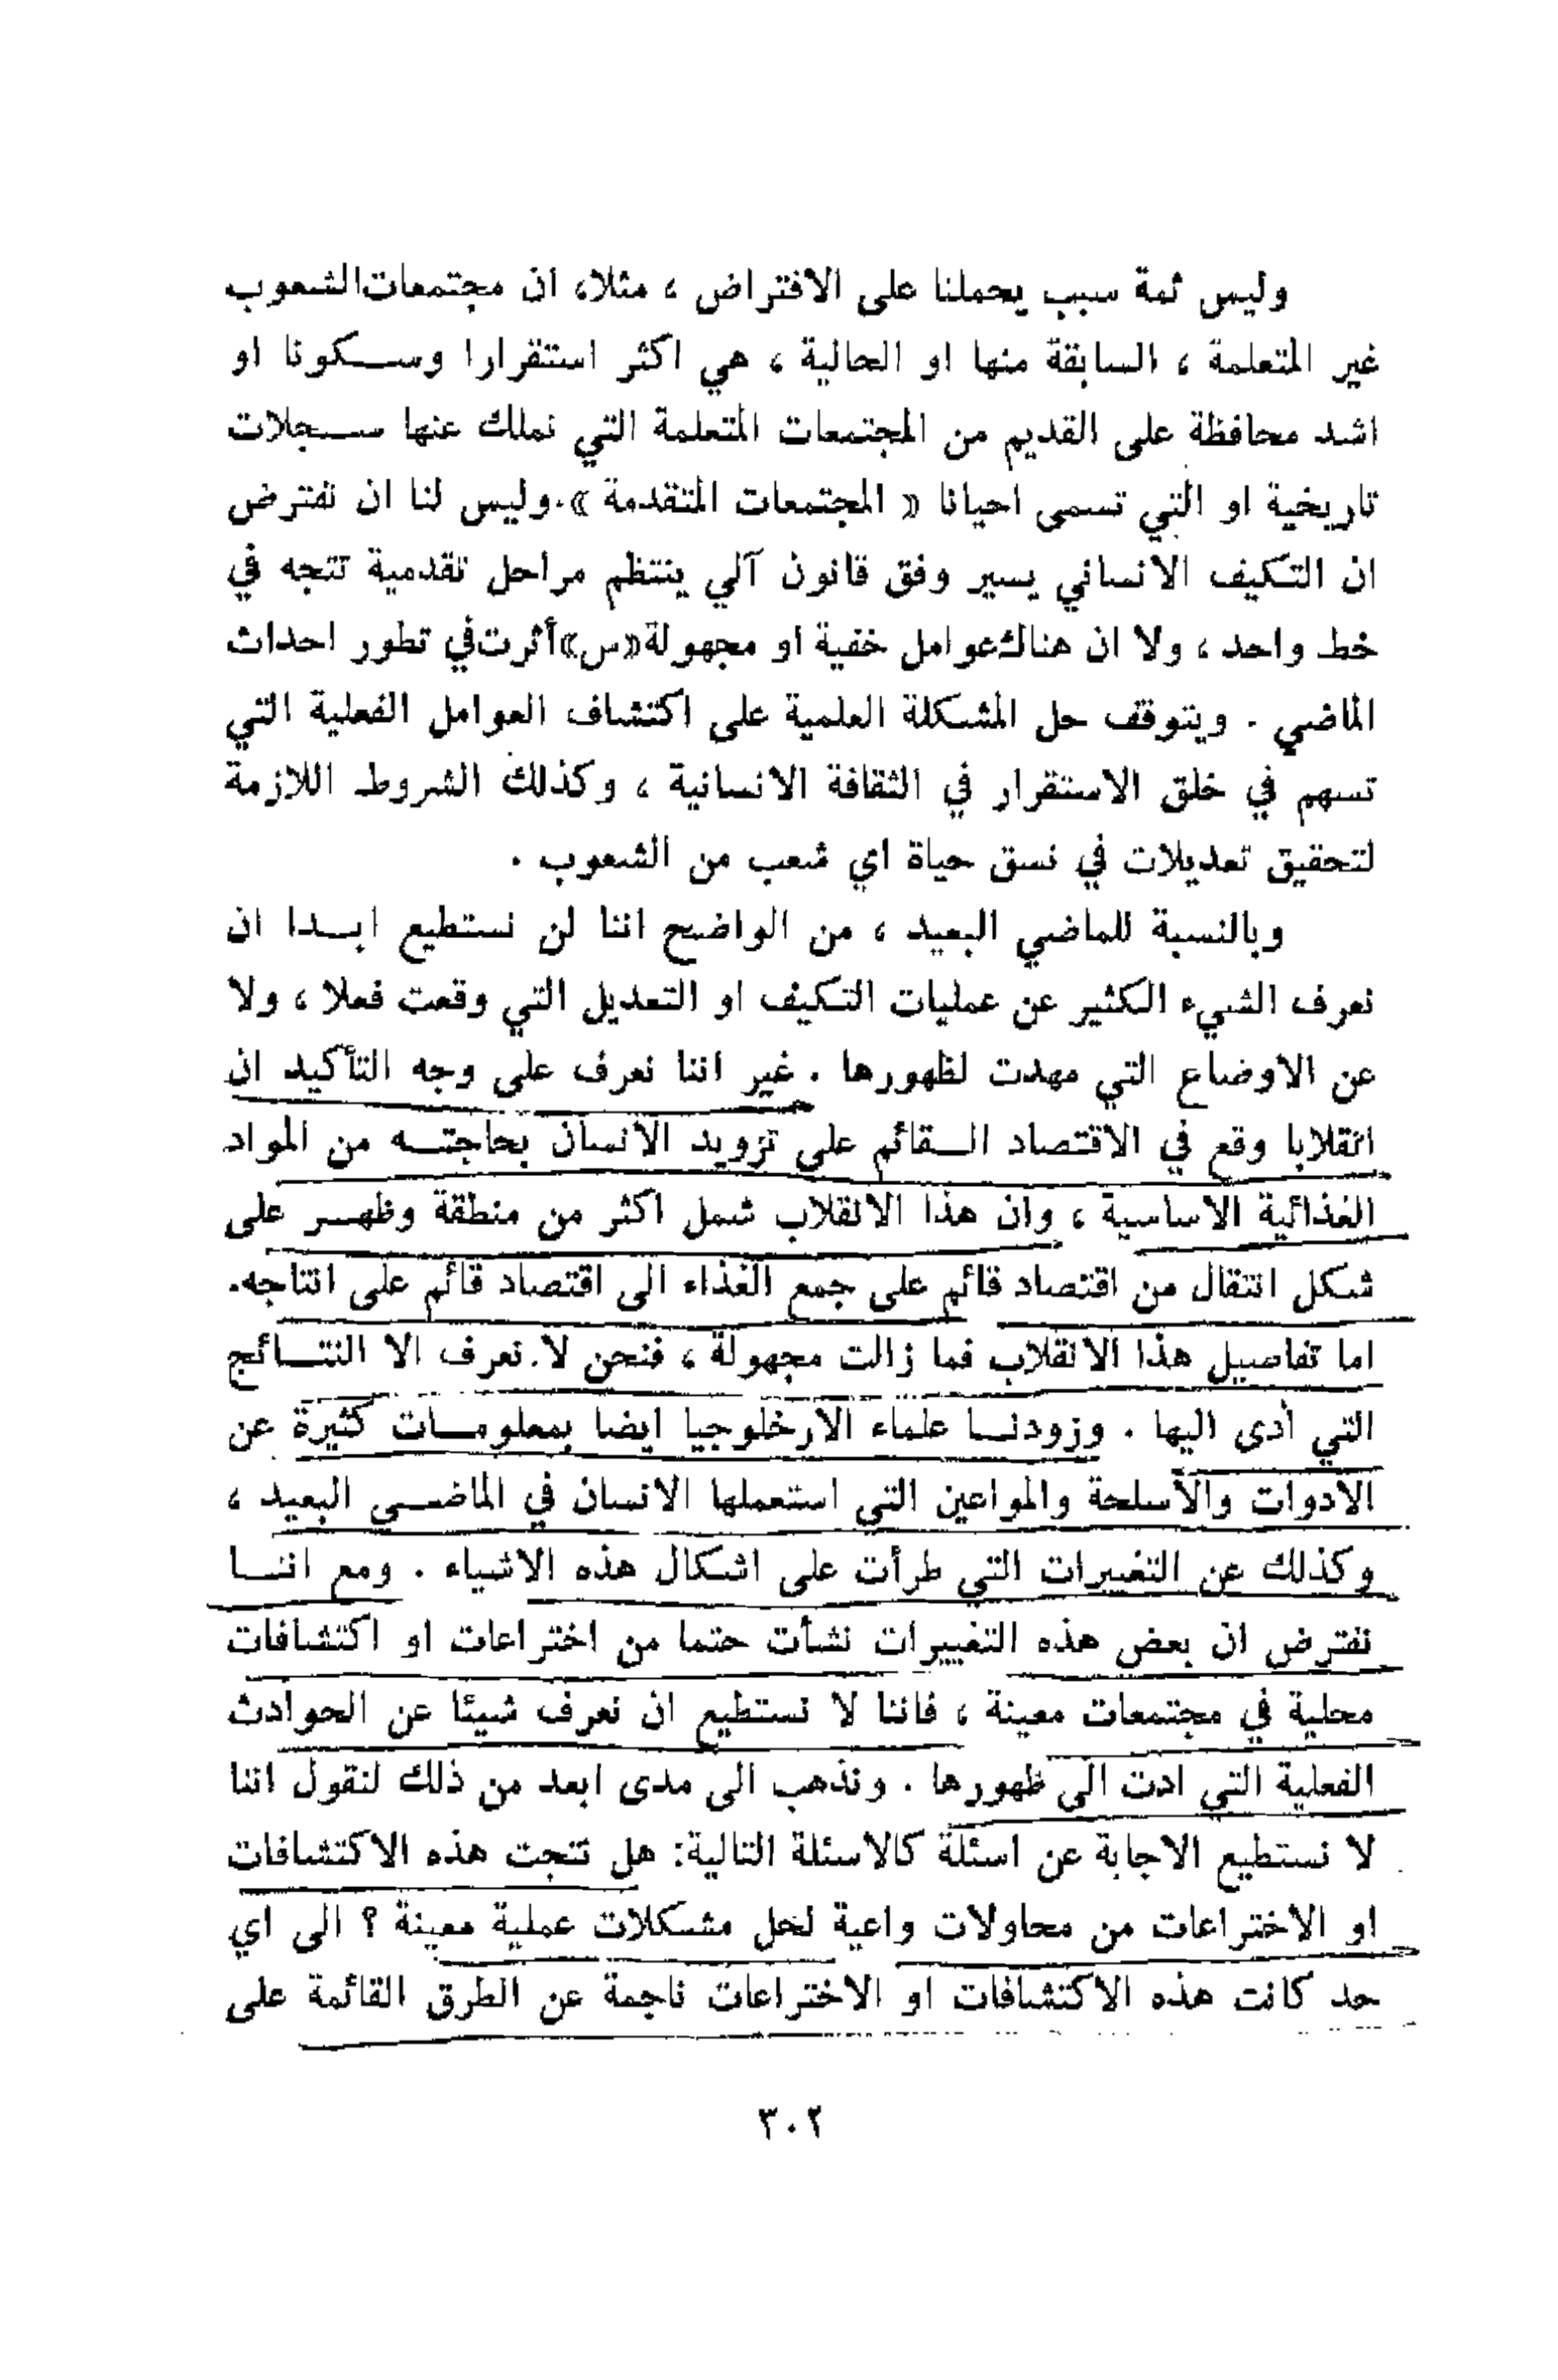 وليس ثمة سبب يحملنا على الافتراض ، مثلا، ان مجتمعات الشعوب
غير المتعلمة ، السابقة منها او الحالية ، هي اكثر استقرارا وسكونا او
اشد محافظة على القديم من المجتمعات المتعلمة التي نملك عنها سجلات
تاريخية او التي تسمى احيانا « المجتمعات المتقدمة ». وليس لنا ان نفترض
ان التكيف الانساني يسير وفق قانون آلي ينتظم مراحل تقدمية تتجه في
خط واحد ، ولا ان هناك عوامل خفية او مجهولة «س» أثرت في تطور احداث
الماضي . ويتوقف حل المشكلة العلمية على اكتشاف العوامل الفعلية التي
تسهم في خلق الاستقرار في الثقافة الانسانية ، وكذلك الشروط اللازمة
لتحقيق تعديلات في نسق حياة اي شعب من الشعوب .
وبالنسبة للماضي البعيد ، من الواضح اننا لن نستطيع ابدا ان
نعرف الشيء الكثير عن عمليات التكيف او التعديل التي وقعت فعلا ، ولا
عن الاوضاع التي مهدت لظهورها . غير اننا نعرف على وجه التأكيد ان
انقلابا وقع في الاقتصاد القائم على تزويد الانسان بحاجته من المواد
الغذائية الاساسية ، وان هذا الانقلاب شمل اكثر من منطقة وظهر على
شكل انتقال من اقتصاد قائم على جمع الغذاء الى اقتصاد قائم على انتاجه.
اما تفاصيل هذا الانقلاب فما زالت مجهولة ، فنحن لا نعرف الا النتائج
التي أدى اليها . وزودنا علماء الارخلوجيا ايضا بمعلومات كثيرة عن
الادوات والأسلحة والمواعين التي استعملها الانسان في الماضي البعيد ،
وكذلك عن التغييرات التي طرأت على اشكال هذه الاشياء . ومع اننا
نفترض ان بعض هذه التغييرات نشأت حتما من اختراعات او اكتشافات
محلية في مجتمعات معينة ، فاننا لا نستطيع ان نعرف شيئا عن الحوادث
الفعلية التي ادت الى ظهورها . ونذهب الى مدى ابعد من ذلك لنقول اننا
لا نستطيع الاجابة عن اسئلة كالاسئلة التالية: هل نتجت هذه الاكتشافات
او الاختراعات من محاولات واعية لحل مشكلات عملية معينة ؟ الى اي
حد كانت هذه الاكتشافات او الاختراعات ناجمة عن الطرق القائمة على
٣٠٢